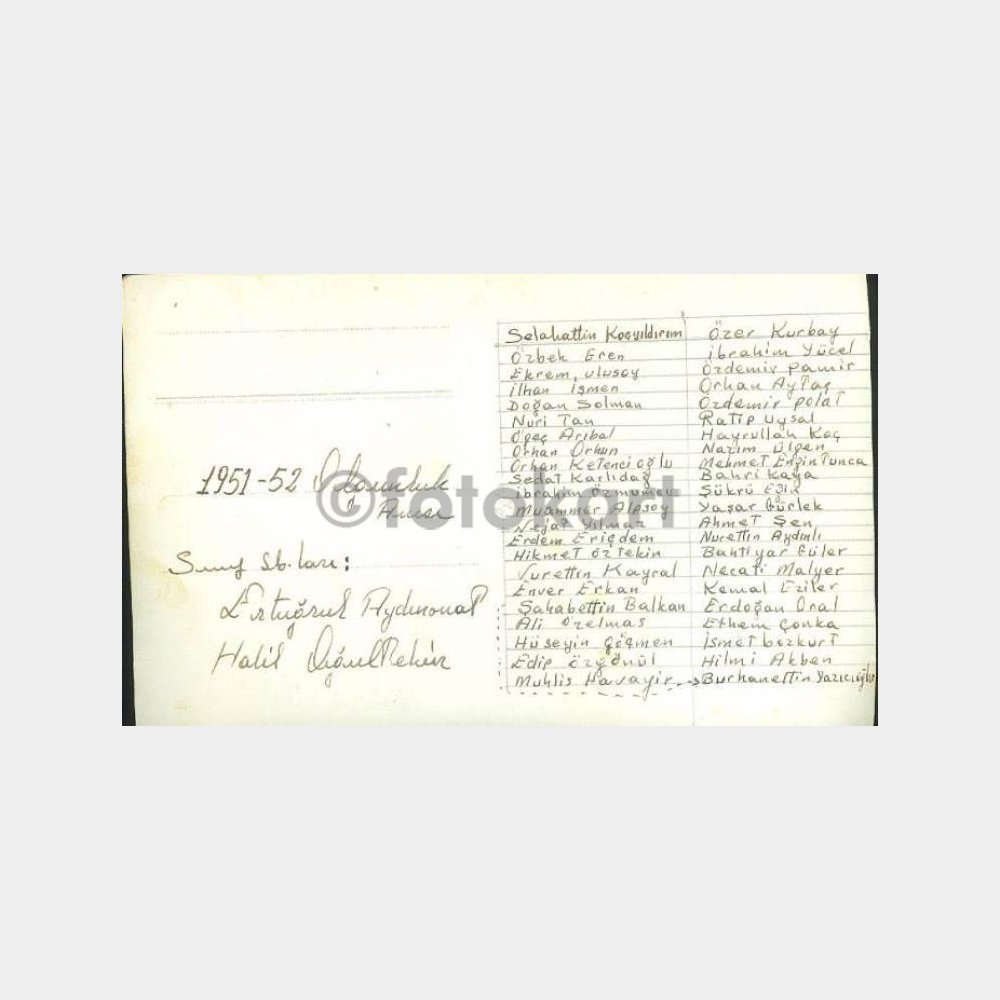 1951-52
Sınıf sb.ları:
Ertuğrul Aydınonat
Halil
Selahattin Koçyıldırım
Özbek Eren
Ekrem ulusoy
İlhan İşmen
Doğan Solman
Nuri Tan
Ögeç Arıbal
Orhan Orhun
Orhan Ketencioğlu
Sedat Karlıdağ
İbrahim
Muammer Alpsoy
Nejat Yılmaz
Erdem Eriçdem
Hikmet Öztekin
Nurettin Kayral
Enver Erkan
Şahabettin Balkan
Ali Özelmas
Hüseyin Göçmen
Edip Özgönül
Muhlis Havayir
Özer Kurbay
İbrahim Yücel
Özdemir Pamir
Orhan Aytaç
Özdemir Polat
Ratip Uysal
Hayrullah Koç
Nazım Ülgen
Mehmet Engin Tunca
Bahri Kaya
Şükrü Ezin
Yaşar Gürlek
Ahmet Şen
Nurettin Aydınlı
Bahtiyar Güler
Necati Malyer
Kemal Eziler
Erdoğan Oral
Ethem Çonka
İsmet bozkurt
Hilmi Akben
Burhanettin Yazıcıoğlu
©fotokart